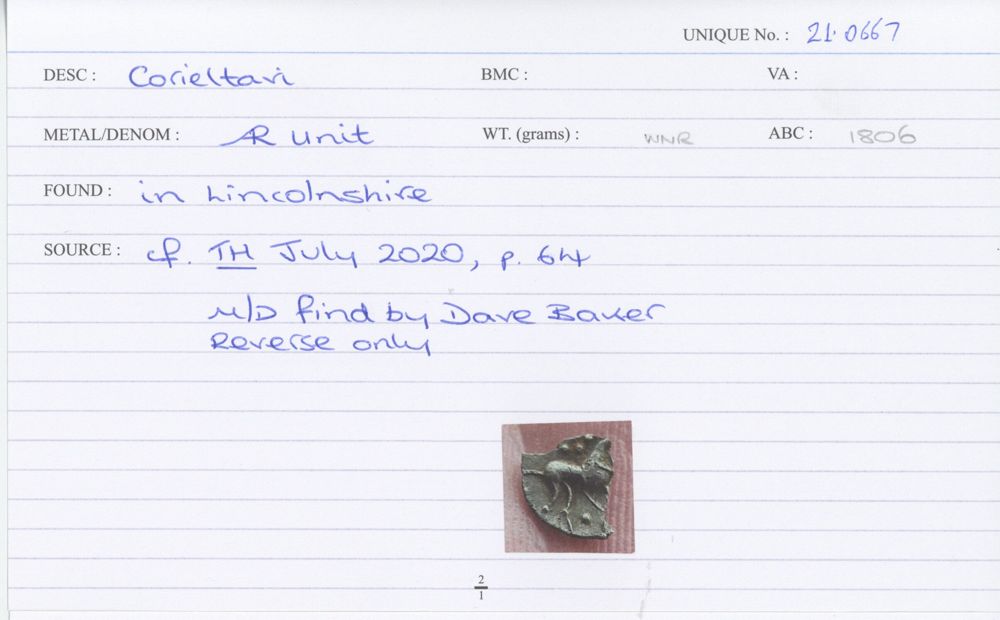 UNIQUE No. : 21.0667
DESC : Corieltavi BMC : VA :
METAL/DENOM : AR unit WT. (grams) : WNR ABC : 1806
FOUND : in Lincolnshire
SOURCE : cf. TH July 2020, p. 64
M/D find by Dave Baker
Reverse only
2
1